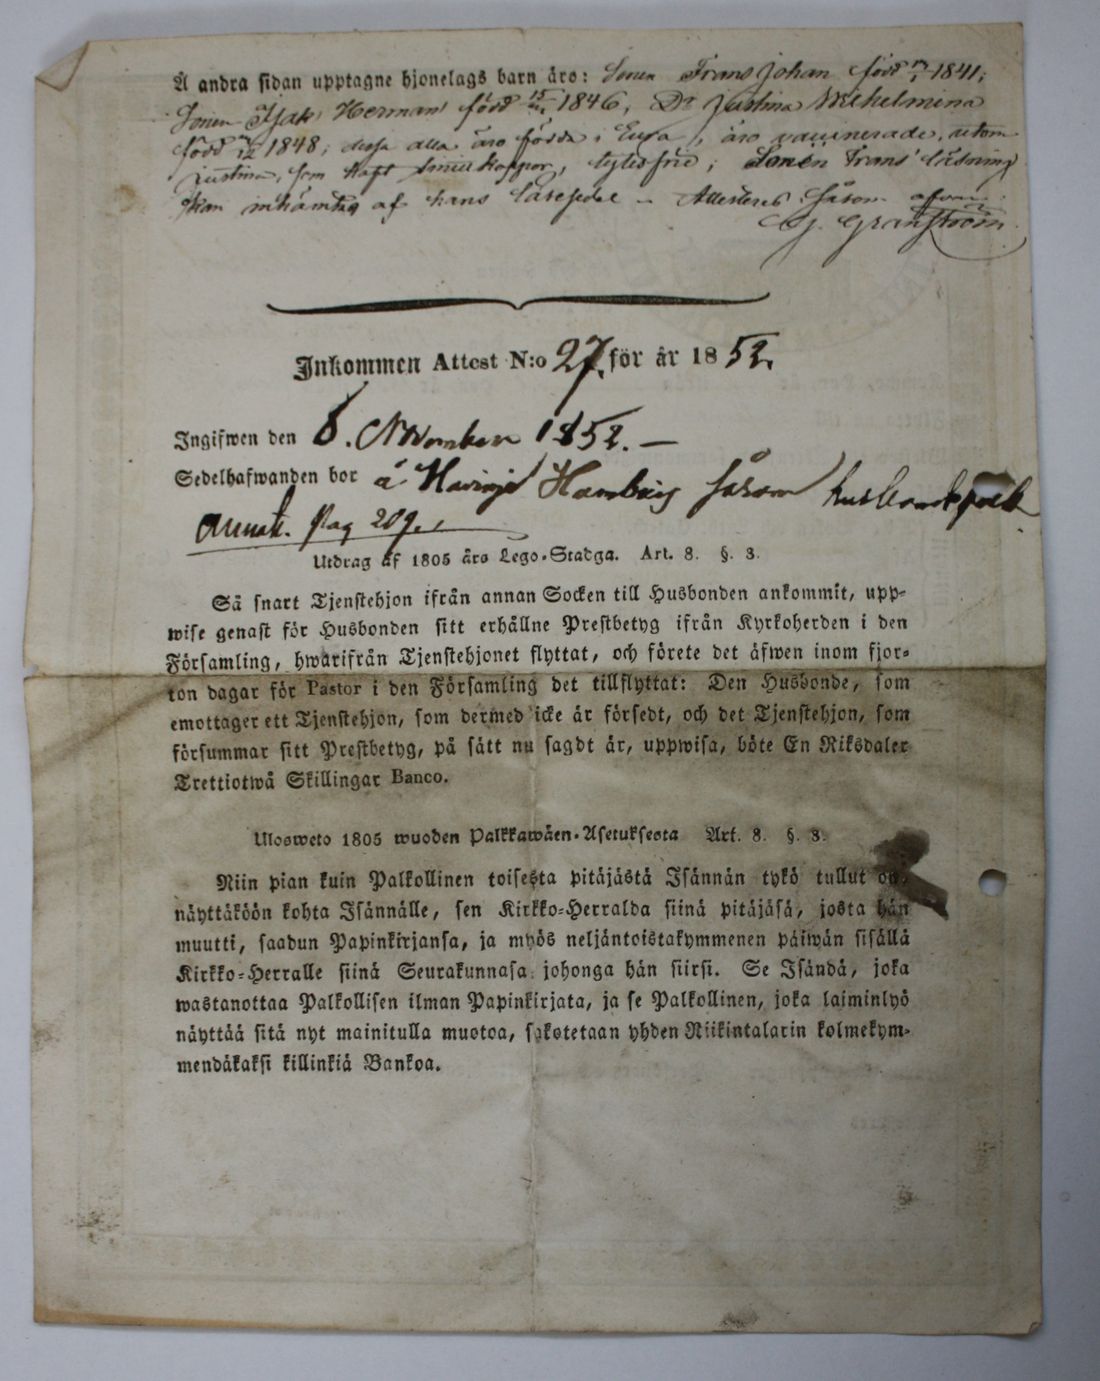 Å andra sidan upptagne hjonelags barn äro: Sonen Frans Johan född 1841;
Sonen Isak Herman född 1846, Dr Justina Wilhelmina
född 1848; dessa alla äro födda i Eura, äro vaccinerade, utom
Justina, som haft smittkoppor, lytesfrie; Sonen Frans' läsning
kan inhämtas af hans läsesedel – Attesteras såsom ofvan
Granström
Inkommen Attest N:o 27. för år 1852.
Ingifwen den 8. November 1852. —
Sedelhafwanden bor å Hamberg såsom
Pag 209.
Utdrag af 1805 års Lego-Stadga. Art. 8. §. 3.
Så snart Tjenstehjon ifrån annan Socken till Husbonden ankommit, upp-
wise genast för Husbonden sitt erhållne Prestbetyg ifrån Kyrkoherden i den
Församling, hwarifrån Tjenstehjonet flyttat, och förete det äfwen inom fjor-
ton dagar för Pastor i den Församling det tillflyttat: Den Husbonde, som
emottager ett Tjenstehjon, som dermed icke är försedt, och det Tjenstehjon, som
försummar sitt Prestbetyg, på sätt nu sagdt är, uppwisa, böte En Riksdaler
Trettiotwå Skillingar Banco.
Ulosweto 1805 wuoden Palkkawäen-Asetuksesta Art. 8. §. 3.
Niin pian kuin Palkollinen toisesta pitäjästä Isännän tykö tullut on,
näyttäköön kohta Isännälle, sen Kirkko-Herralda siinä pitäjäsä, josta hän
muutti, saadun Papinkirjansa, ja myös neljäntoistakymmenen päiwän sisällä
Kirkko-Herralle siinä Seurakunnasa johonga hän siirsi. Se Isändä, joka
wastanottaa Palkollisen ilman Papinkirjata, ja se Palkollinen, joka laiminlyö
näyttää sitä nyt mainitulla muotoa, sakotetaan yhden Riikintalarin kolmekym-
mendäkaksi killinkiä Bankoa.